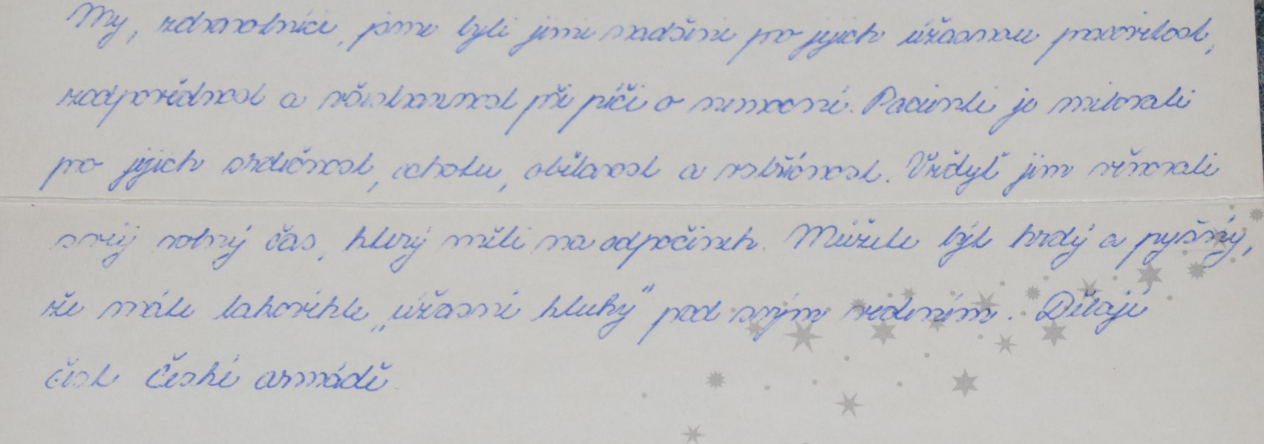 My, zdravotníci, jsme byli jimi nadšeni pro jejich úžasnou pracovitost,
zodpovědnost a všestrannost při péči o nemocné. Pacienti je milovali
pro jejich srdečnost, ochotu, obětavost a vstřícnost. Vždyť jim věnovali
svůj volný čas, který měli na odpočinek. Můžete být hrdý a pyšný,
že máte takovéhle „úžasné kluky" pod svým vedením. Dělají
čest České armádě.